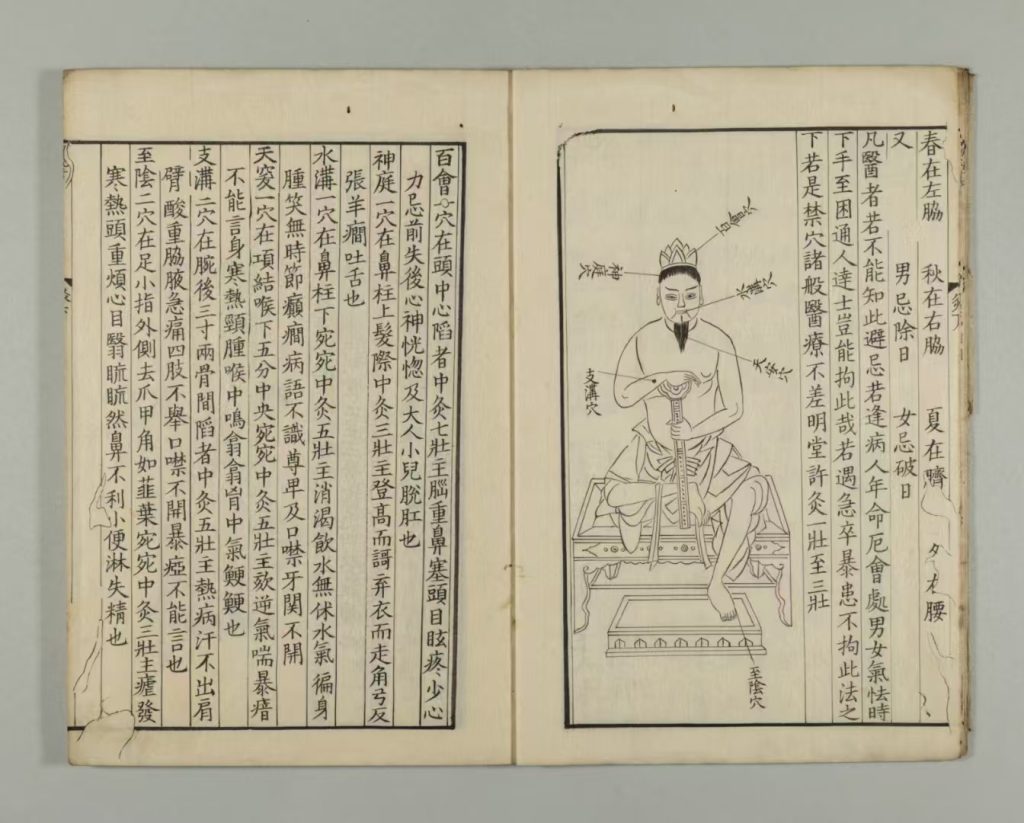 春在左脇　秋在右脇　夏在臍　腰
又　男忌除日　女忌破日
凡醫者若不能知此避忌若逢病人年命厄會處男女氣怯時
下手至困通人達士豈能拘此哉若遇急卒暴患不拘此法之
下若是禁穴諸般醫療不差明堂許灸一壯至三壯
百會穴
神庭穴
水溝穴
天突穴
支溝穴
至陰穴
百會一穴在頭中心陷者中灸七壯主腦重鼻塞頭目眩疼少心
力忌前失後心神恍惚及大人小兒脫肛也
神庭一穴在鼻柱上髮際中灸三壯主登高而謌弃衣而走角弓反
張羊癎吐舌也
水溝一穴在鼻柱下宛宛中灸五壯主消渴飲水無休水氣徧身
腫笑無時節癲癎病語不識尊卑及口噤牙関不開
天突一穴在項結喉下五分中央宛宛中灸五壯主欬逆氣喘暴瘖
不能言身寒熱頸腫喉中鳴翕翕胷中氣鯁鯁也
支溝二穴在腕後三寸兩骨間陷者中灸五壯主熱病汗不出肩
臂酸重脇腋急痛四肢不舉口噤不開暴瘂不能言也
至陰二穴在足小指外側去爪甲角如韮葉宛宛中灸三壯主瘧發
寒熱頭重煩心目翳䀮䀮然鼻不利小便淋失精也